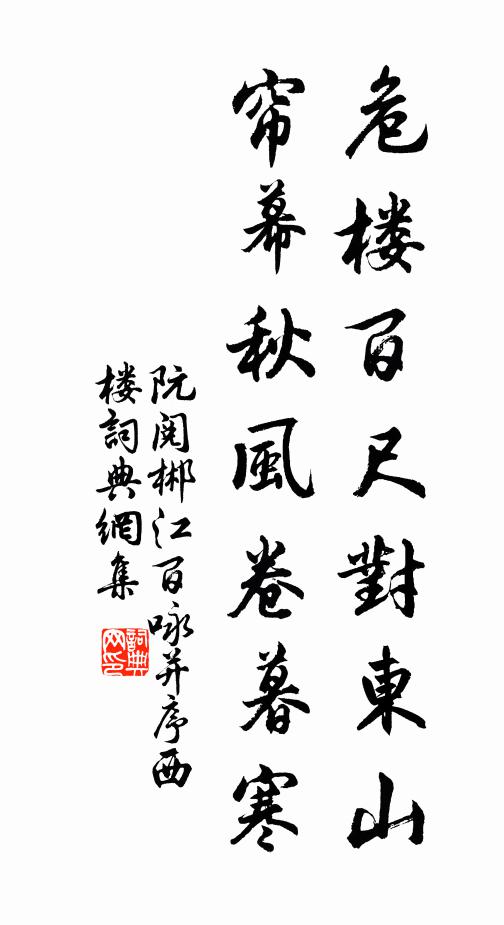 危楼百尺對東山
帘幕秋風卷暮寒
阮閱郴江百咏并序西
楼詞典網集
詞典网印